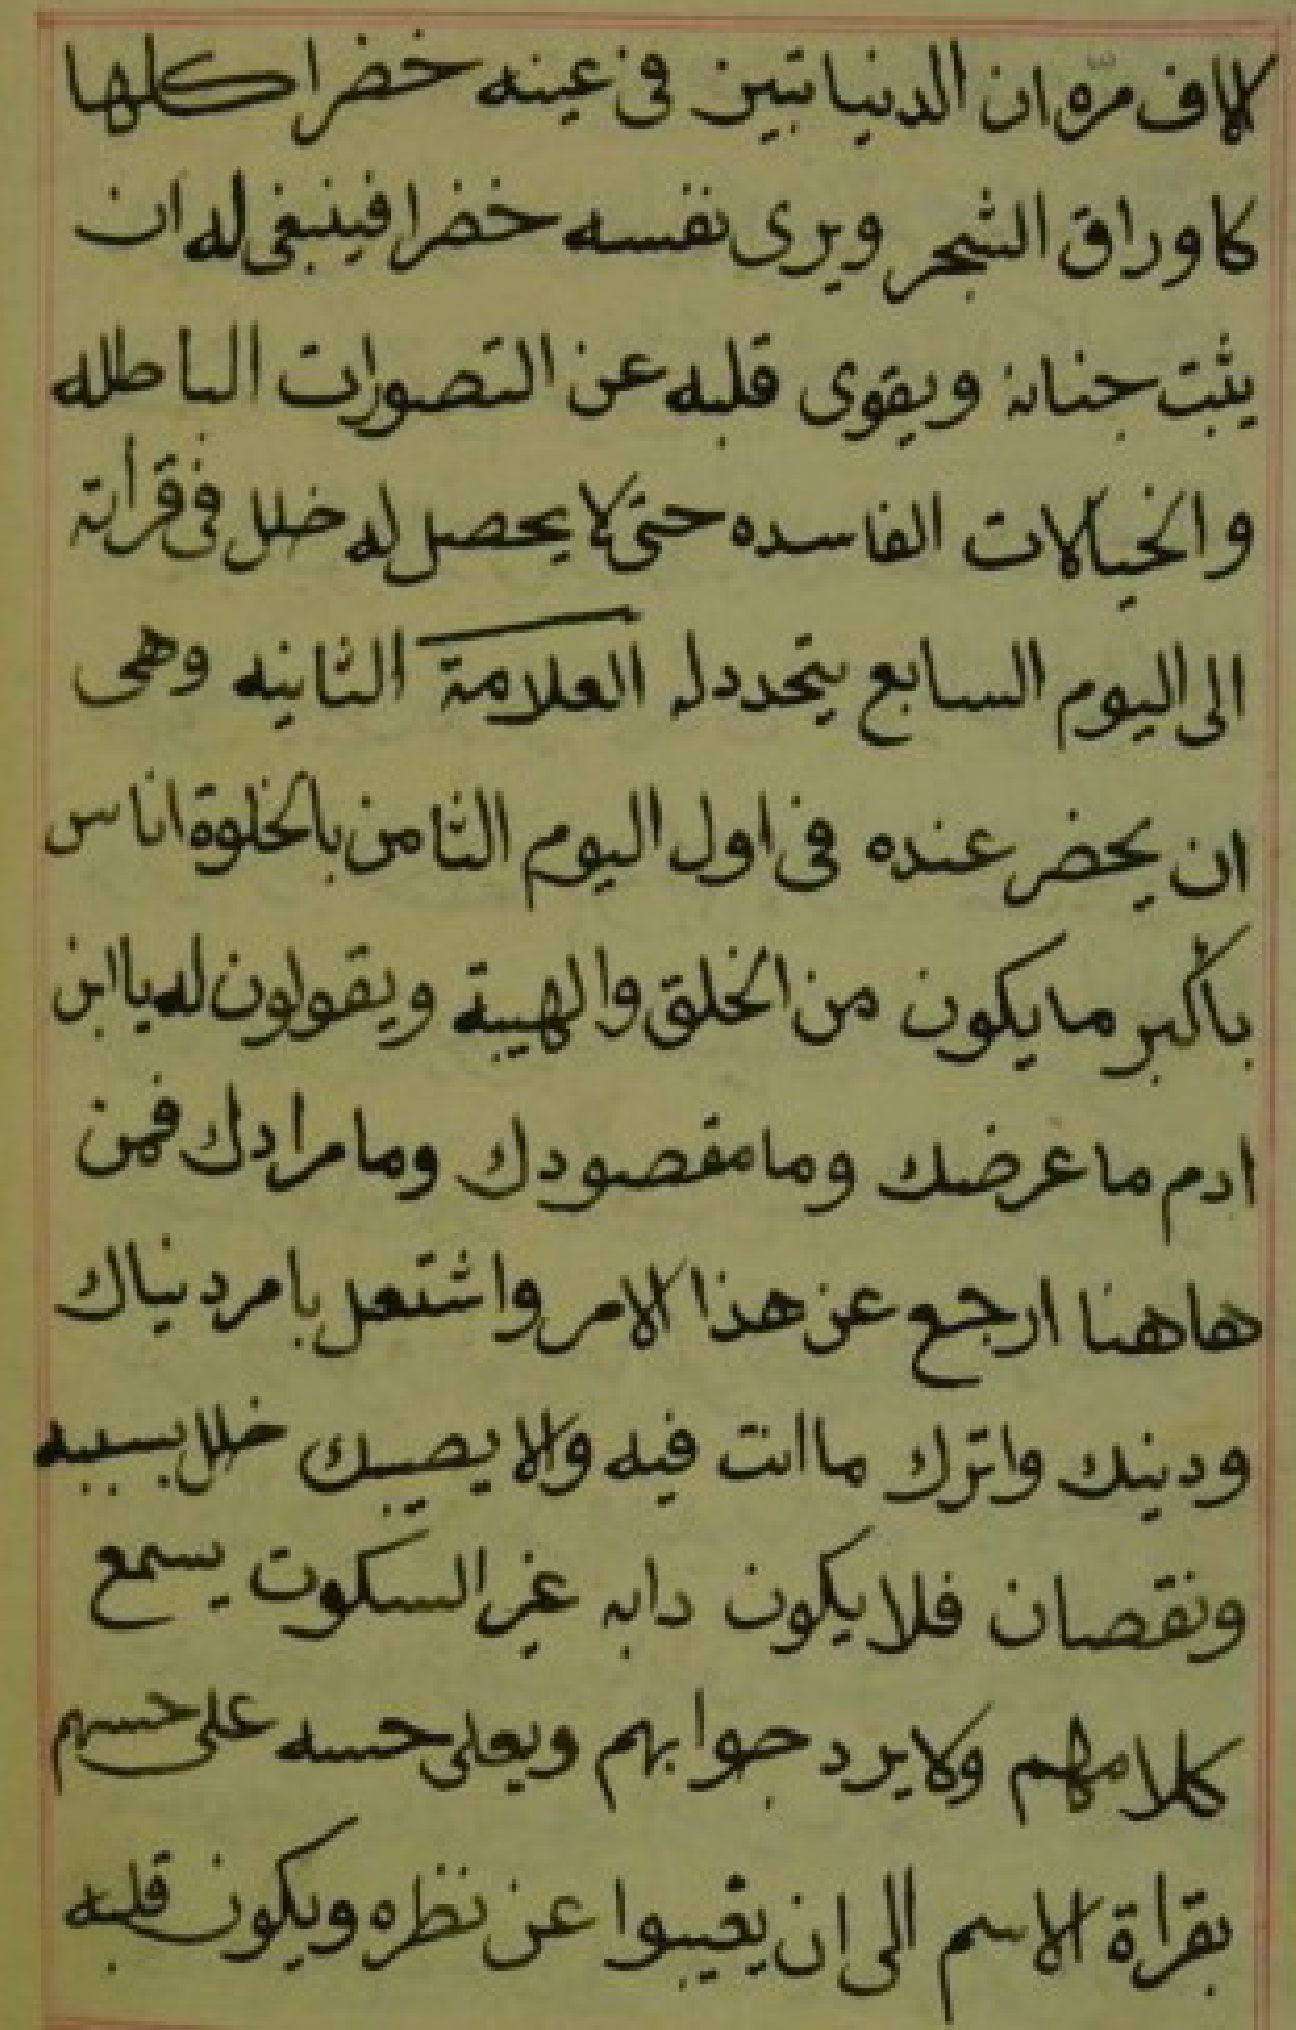 الاف مرّه ان الدنيا تبين فى عينه خضرا كلها
كاوراق الشجر ويرى نفسه خضرا فينبغى له ان
يثبت جنانه ويقوى قلبه عن التصورات الباطله
والخيالات الفاسده حتى لا يحصل له خلل فى قرأته
الى اليوم السابع يتحدد له العلامة الثانيه وهى
ان يحضر عنده فى اول اليوم الثامن بالخلوة اناس
بأكبر ما يكون من الخلق والهيبة ويقولون له يا ابن
ادم ما غرضك وما مقصودك وما مرادك فمن
هاهنا ارجع عن هذا الامر واشتعل بامر دنياك
ودينك واترك ما انت فيه والا يصيبك خلل بسببه
ونقصان فلا يكون دابه غير السكوت يسمع
كلامهم ولا يرد جوابهم ويعلى حسه على حسهم
بقراة الاسم الى ان يغيبوا عن نظره ويكون قلبه